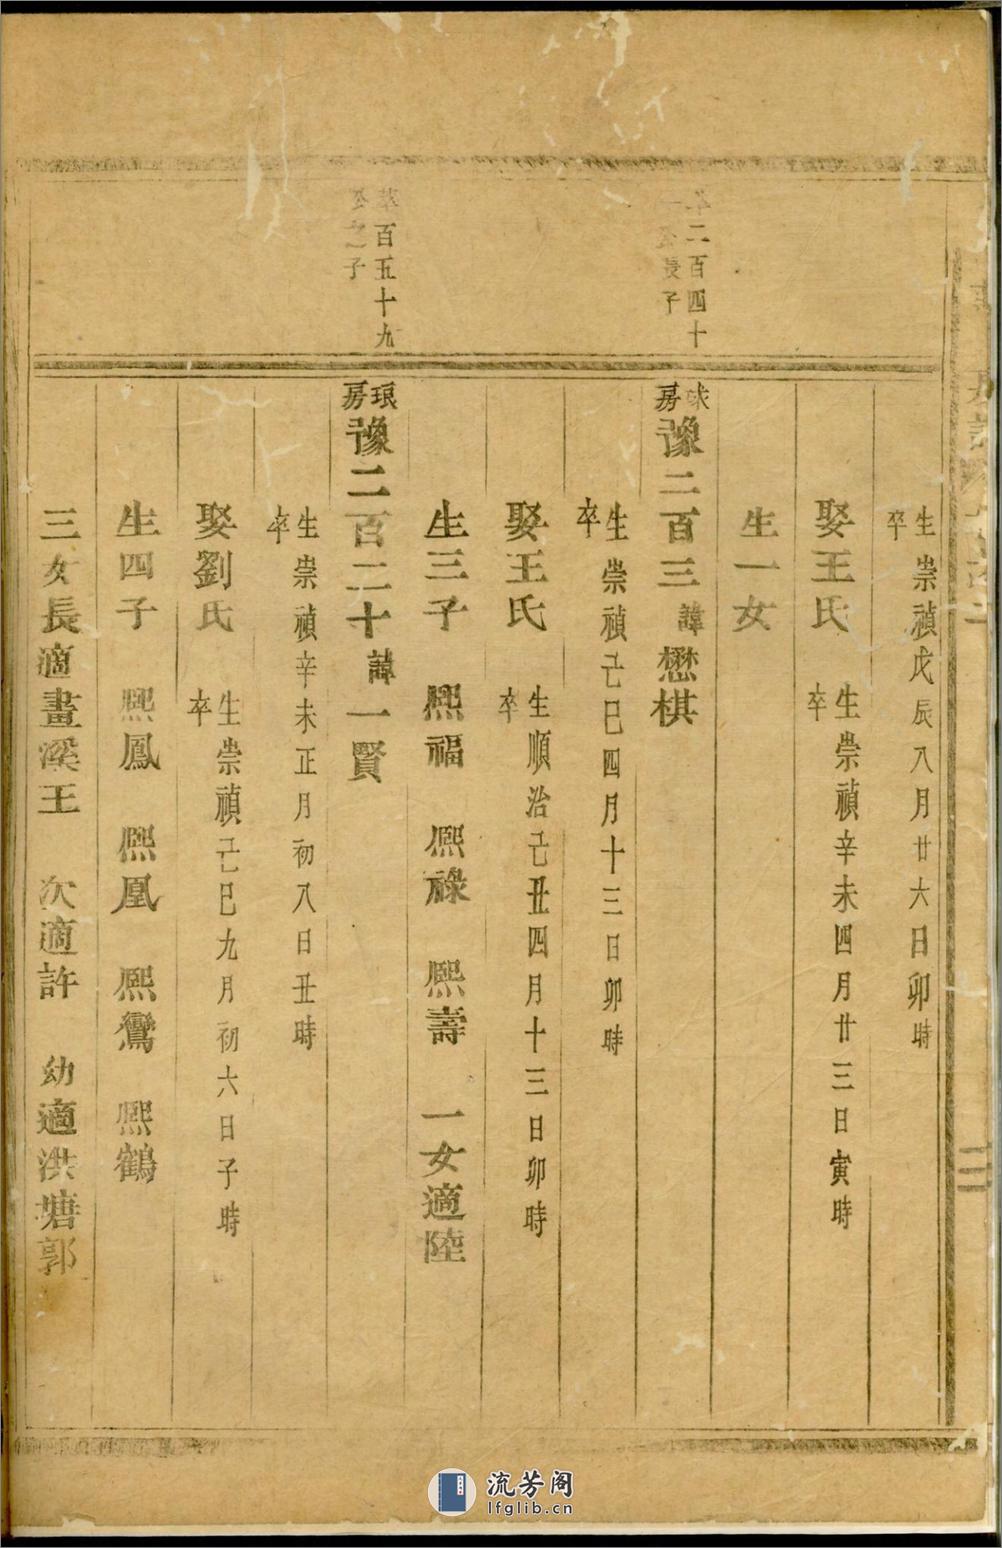 生崇禎戊辰八月廿六日卯時
卒
娶王氏
生崇禎辛未四月廿三日寅時
卒
生一女
二百四十
一公長子
房豫二百三諱懋棋
生崇禎己巳四月十三日卯時
卒
娶王氏
生順治己丑四月十三日卯時
卒
生三子 熙福 熙祿 熙壽 一女適陸
萃百五十九
公之子
琅房豫二百二十諱一賢
生崇禎辛未正月初八日丑時
卒
娶劉氏
生崇禎己巳九月初六日子時
卒
生四子 熙鳳 熙凰 熙鸞 熙鶴
三女長適畫溪王 次適許 幼適洪塘郭
流芳阁
lfglib.cn